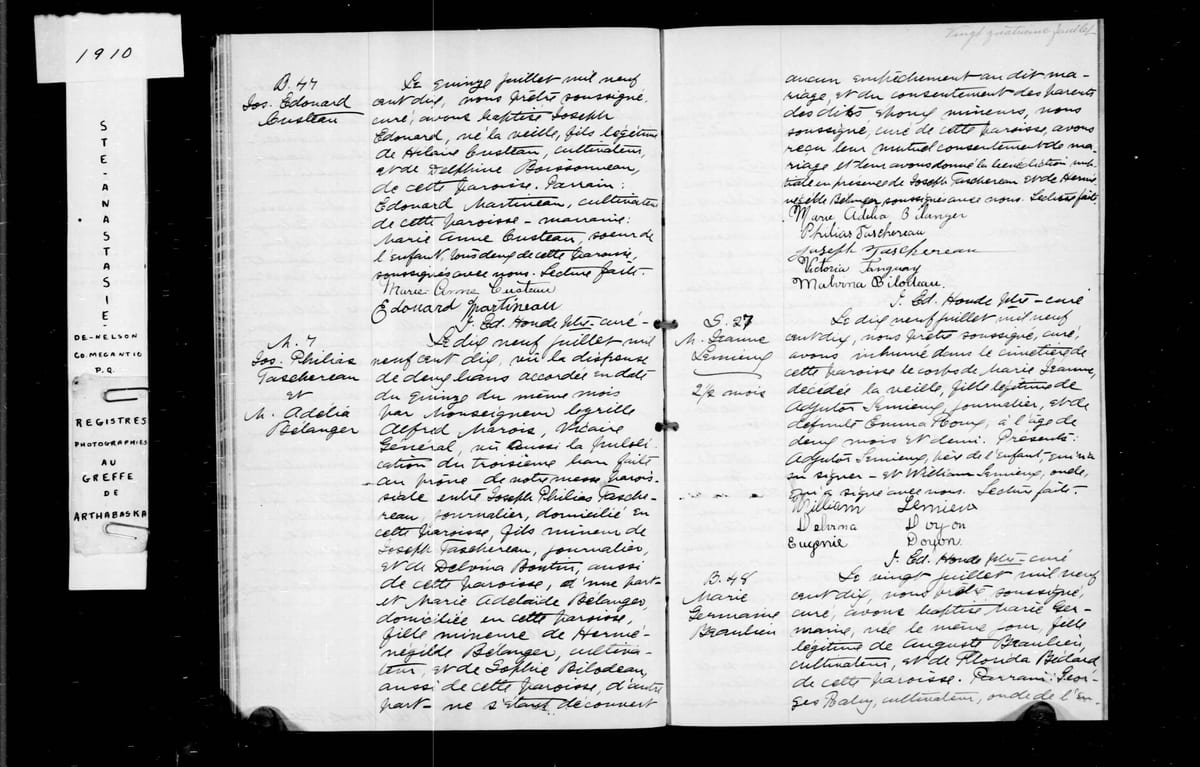 1910
STE-ANASTASIE-
DE-NELSON
CO. MEGANTIC
P.Q.
REGISTRES
PHOTOGRAPHIES
AU
GREFFE
DE
ARTHABASKA
B. 47
Jos. Edouard
Custeau
Le quinze juillet mil neuf
cent dix, nous prêtre soussigné,
curé, avons baptisé Joseph
Edouard, né la veille, fils légitime
de Hilaire Custeau, cultivateur,
et de Delphine Boissonneau,
de cette paroisse. Parrain:
Edouard Martineau, cultivateur
de cette paroisse - marraine:
Marie Anne Custeau, soeur de
l'enfant, tous deux de cette paroisse,
soussignés avec nous. Lecture faite.
Marie-Anne Custeau
Edouard Martineau
J. Ed. Houde ptre - curé -
M. 7
Jos. Philias
Taschereau
et
M. Adélia
Bélanger
Le dix neuf juillet mil
neuf cent dix, vu la dispense
de deux bans accordée en date
du quinze du même mois
par Monseigneur
Alfred Marois, Vicaire
Général, vu aussi la publi-
cation du troisième ban faite
au prône de notre messe parois-
siale entre Joseph Philias Tasche-
reau, journalier, domicilié en
cette paroisse, fils mineur de
Joseph Taschereau, journalier,
et de Delvina Boutin, aussi
de cette paroisse, d'une part
et Marie Adelaide Bélanger,
domiciliée en cette paroisse,
fille mineure de Hermé-
négilde Bélanger, cultiva-
teur, et de Sophie Bilodeau,
aussi de cette paroisse, d'autre
part - ne s'étant découvert
Vingt quatrième feuillet
aucun empêchement au dit ma-
riage, et du consentement des parents
des dits époux mineurs, nous
soussigné, curé de cette paroisse, avons
reçu leur mutuel consentement de ma-
riage et leur avons donné la bénédiction nup-
tiale en présence de Joseph Taschereau et de Hermé-
négilde Bélanger, soussignés avec nous. Lecture faite.
Marie Adélia Bélanger
Philias Taschereau
Joseph Taschereau
Victoria Tanguay
Malvina Bilodeau.
J. Ed. Houde ptre - curé
S. 27
M. Jeanne
Lemieux
2½ mois
Le dix neuf juillet mil neuf
cent dix, nous prêtre soussigné, curé,
avons inhumé dans le cimetière de
cette paroisse le corps de Marie Jeanne,
décédée la veille, fille légitime de
Adjutor Lemieux, journalier, et de
défunte Emma Roux, à l'âge de
deux mois et demi. Présents:
Adjutor Lemieux, père de l'enfant, qui n'a
su signer - et William Lemieux, oncle,
qui a signé avec nous. Lecture faite.
William Lemieux
Delvina Doyon
Eugénie Doyon
J. Ed. Houde ptre - curé
B. 48
Marie
Germaine
Beaulieu
Le vingt juillet mil neuf
cent dix, nous prêtre soussigné,
curé, avons baptisé Marie Ger-
maine, née le même jour, fille
légitime de Auguste Beaulieu,
cultivateur, et de Florida Bédard
de cette paroisse. Parrain: Geor-
ges Baby, cultivateur, oncle de l'en-